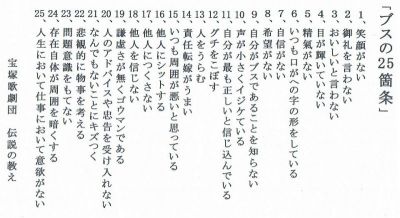 「ブスの25箇条」
1、笑顔がない
2、御礼を言わない
3、おいしいと言わない
4、目が輝いていない
5、精気がない
6、いつも口がへの字の形をしている
7、自信がない
8、希望がない
9、自分がブスであることを知らない
10、声が小さくイジケている
11、自分が最も正しいと信じ込んでいる
12、グチをこぼす
13、人をうらむ
14、責任転嫁がうまい
15、いつも周囲が悪いと思っている
16、他人にシットする
17、他人につくさない
18、他人を信じない
19、謙虚さが無くゴウマンである
20、人のアドバイスや忠告を受け入れない
21、なんでもないことにキズつく
22、悲観的に物事を考える
23、問題意識をもてない
24、存在自体が周囲を暗くする
25、人生において仕事において意欲がない
宝塚歌劇団　伝説の教え